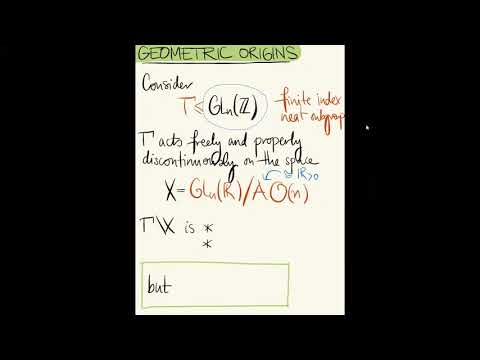 GEOMETRIC ORIGINS
Consider
Γ ⩽ GLn(ℤ) finite index
neat subgroup
Γ acts freely and properly
discontinuously on the space
≅ ℝ>0
X = GLn(ℝ)/A O(n)
Γ\X is *
*
but